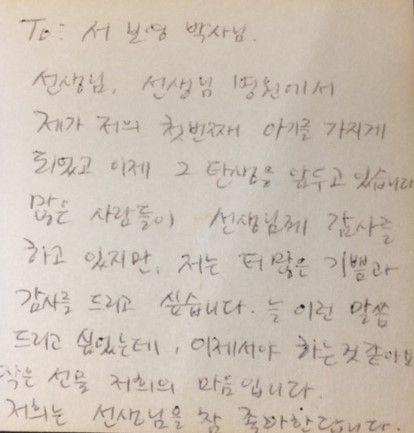 To: 서 보영 박사님.
선생님, 선생님 병원에서
제가 저의 첫번째 아기를 가지게
되었고 이제 그 탄생을 앞두고 있습니다
많은 사람들이 선생님께 감사를
하고 있지만, 저는 더 많은 기쁨과
감사를 드리고 싶습니다. 늘 이런 말씀
드리고 싶었는데, 이제서야 하는것 같아요
작은 선물 저희의 마음입니다.
저희는 선생님을 참 좋아한답니다.